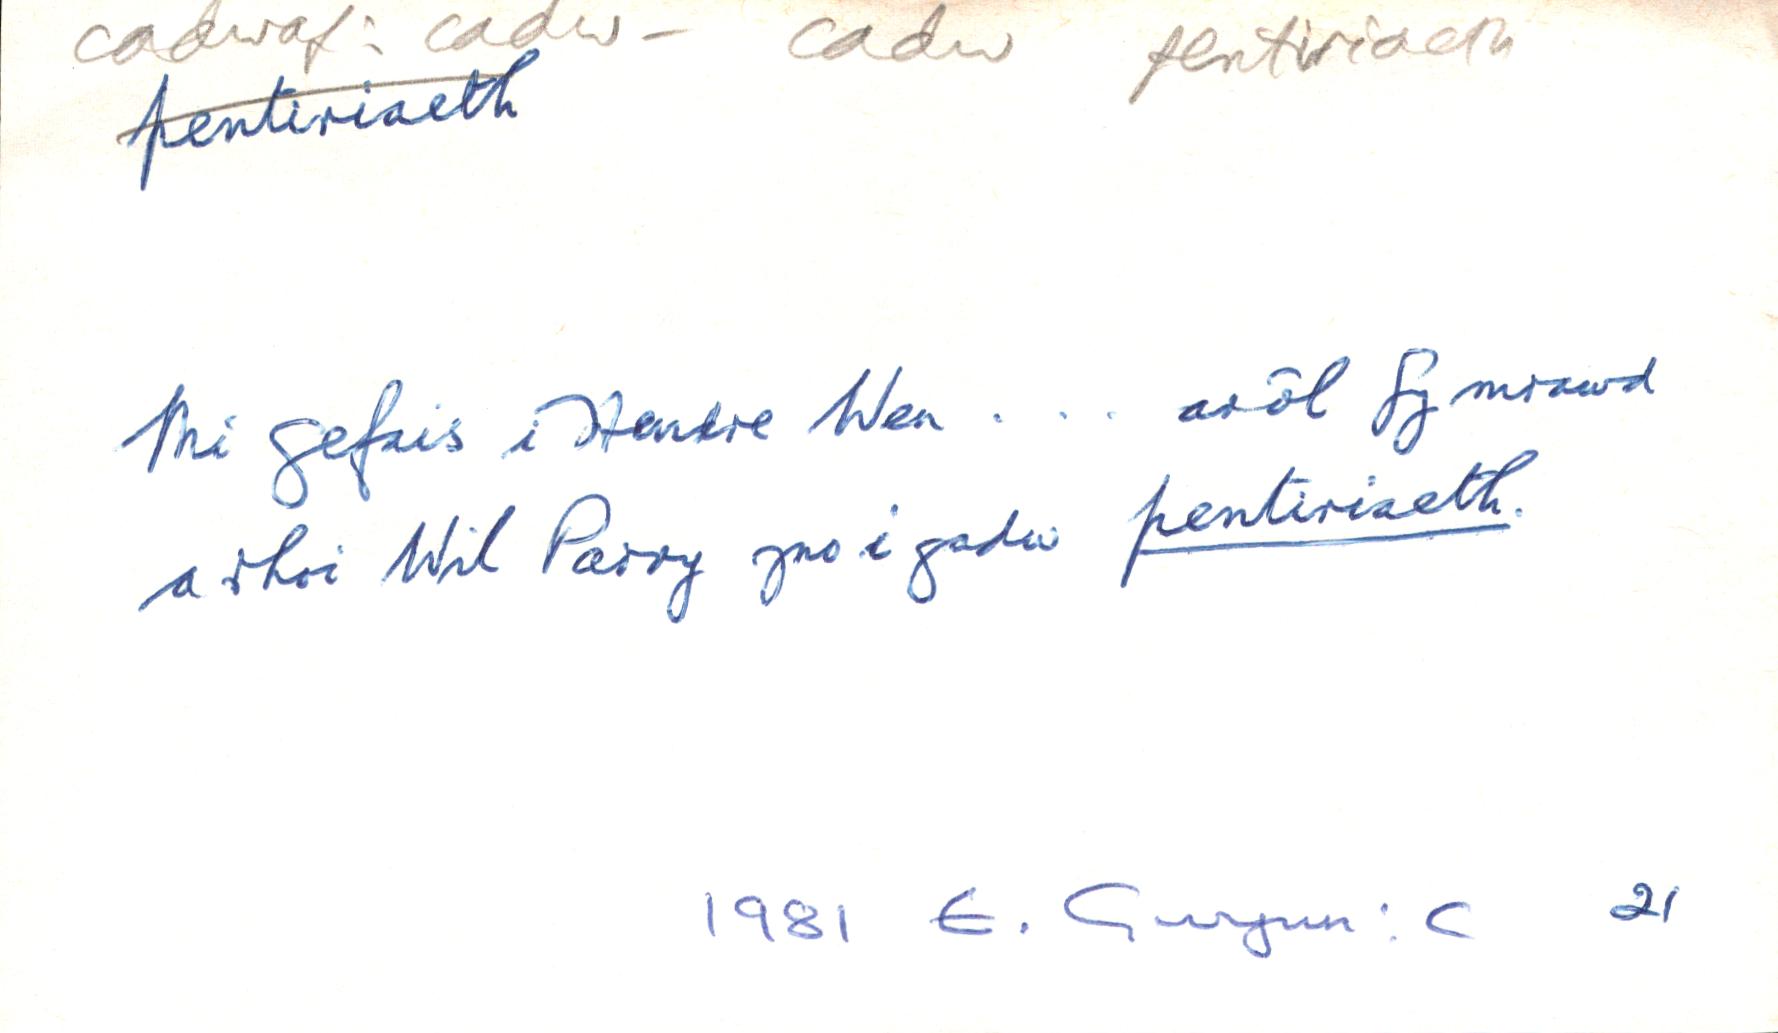 cadwaf: cadw – cadw pentiriaeth
pentiriaeth
Mi gefais i Hendre Wen . . . ar ôl fy mrawd
a rhoi Wil Parry yno i gadw pentiriaeth.
1981 E. Gwynn: C 21